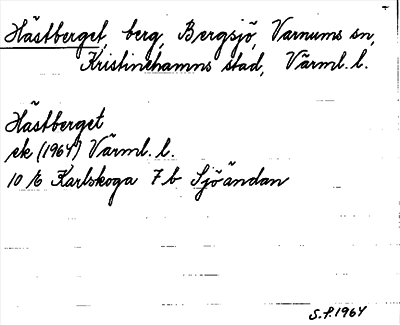 Hästberget, berg, Bergsjö, Varnums sn,
Kristinehamns stad, Värml. l.
Hästberget
ek (1964) Värml. l.
10 E Karlskoga 7 b Sjöändan
S.P. 1964